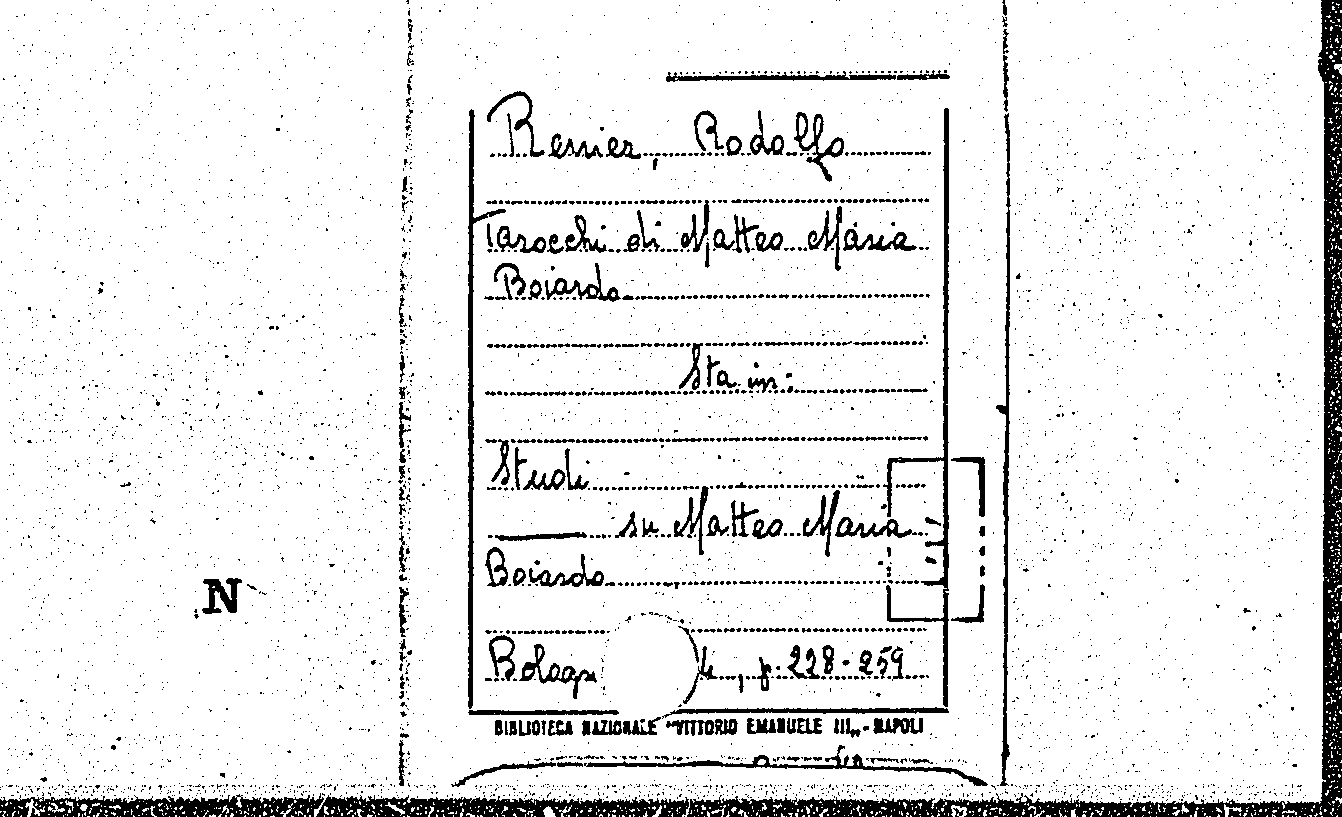 Renier, Rodolfo
Tarocchi di Matteo Maria
Boiardo
Sta in:
Studi
su Matteo Maria
Boiardo
Bologn 4, p. 228-259
BIBLIOTECA NAZIONALE "VITTORIO EMANUELE III„ - NAPOLI
N